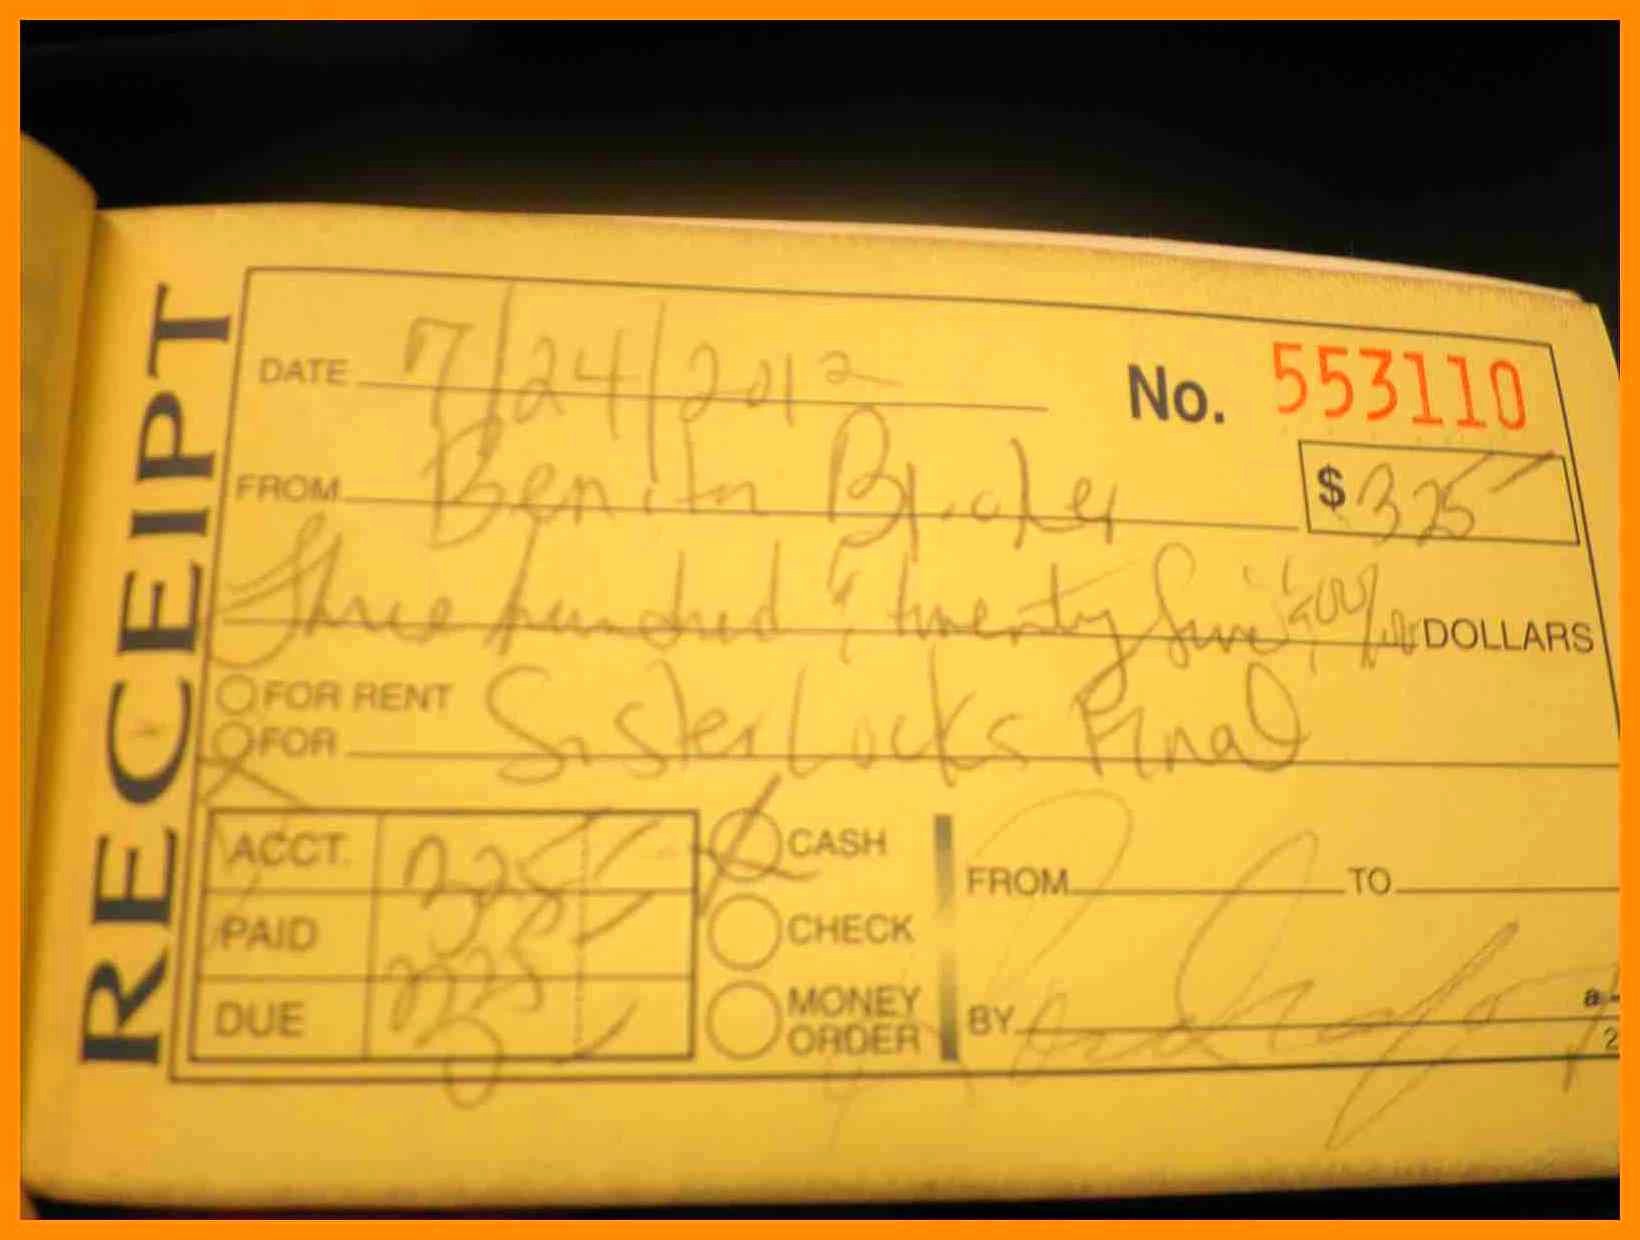 RECEIPT
DATE 7/24/2012 No. 553110
FROM Benita $325
Three hundred & twenty five DOLLARS
FOR RENT
FOR Sisterlocks Final
ACCT. 325
PAID 325
DUE 0
CASH
CHECK
MONEY ORDER
FROM TO
BY